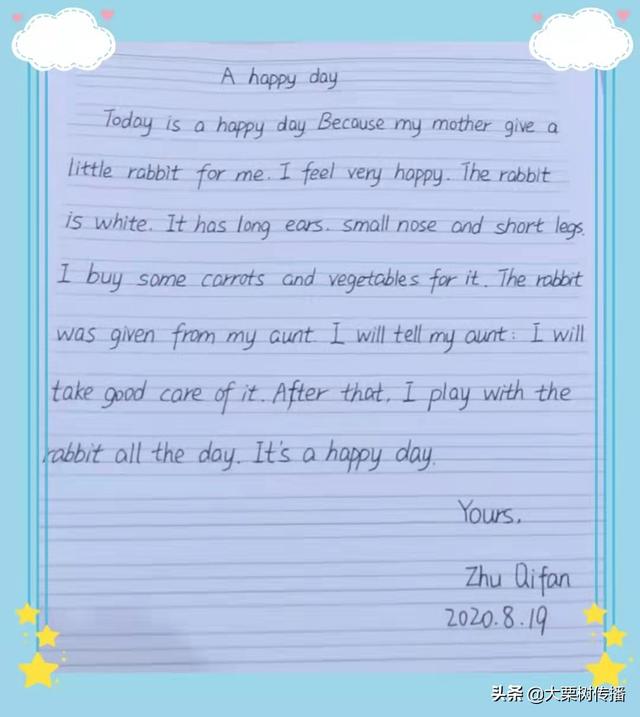 A happy day
Today is a happy day Because my mother give a
little rabbit for me. I feel very happy. The rabbit
is white. It has long ears. small nose and short legs.
I buy some carrots and vegetables for it. The rabbit
was given from my aunt I will tell my aunt: I will
take good care of it. After that, I play with the
rabbit all the day. It's a happy day.
Yours,
Zhu Qifan
2020.8.19
头条 @大栗树传播